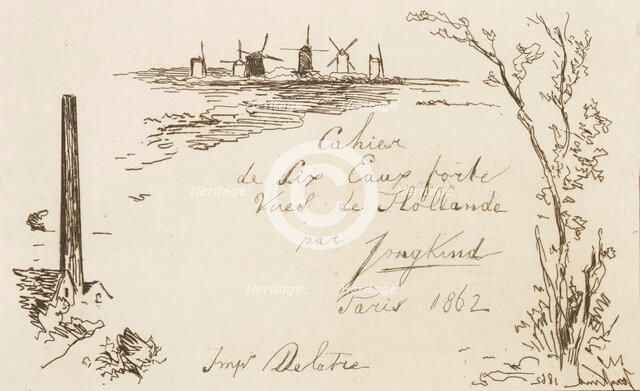 Cahier
de Six Eaux forte
Vues de Hollande
par
Jongkind
Paris 1862
Impr Delatre
Heritage Heritage
Heritage Heritage